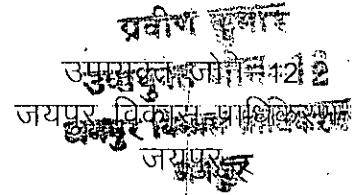 प्रवीण कुमार
उपायुक्त जोन-12
जयपुर विकास प्राधिकरण
जयपुर